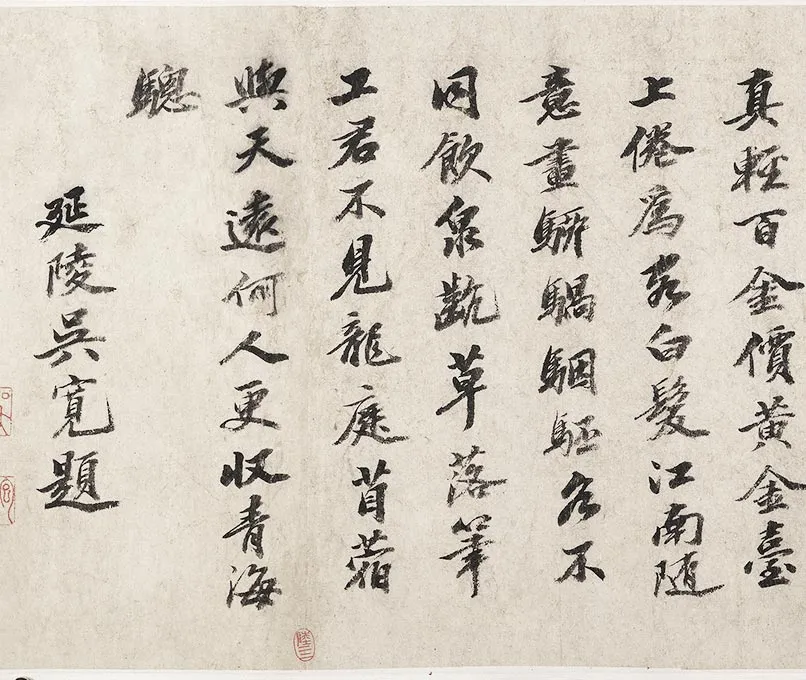 真輕百金價黃金臺
上倦為客白髮江南隨
意畫騂騧駰駓各不
同飲泉齕草落筆
工君不見龍庭苜蓿
與天遠何人更收青海
驄
延陵吳寬題